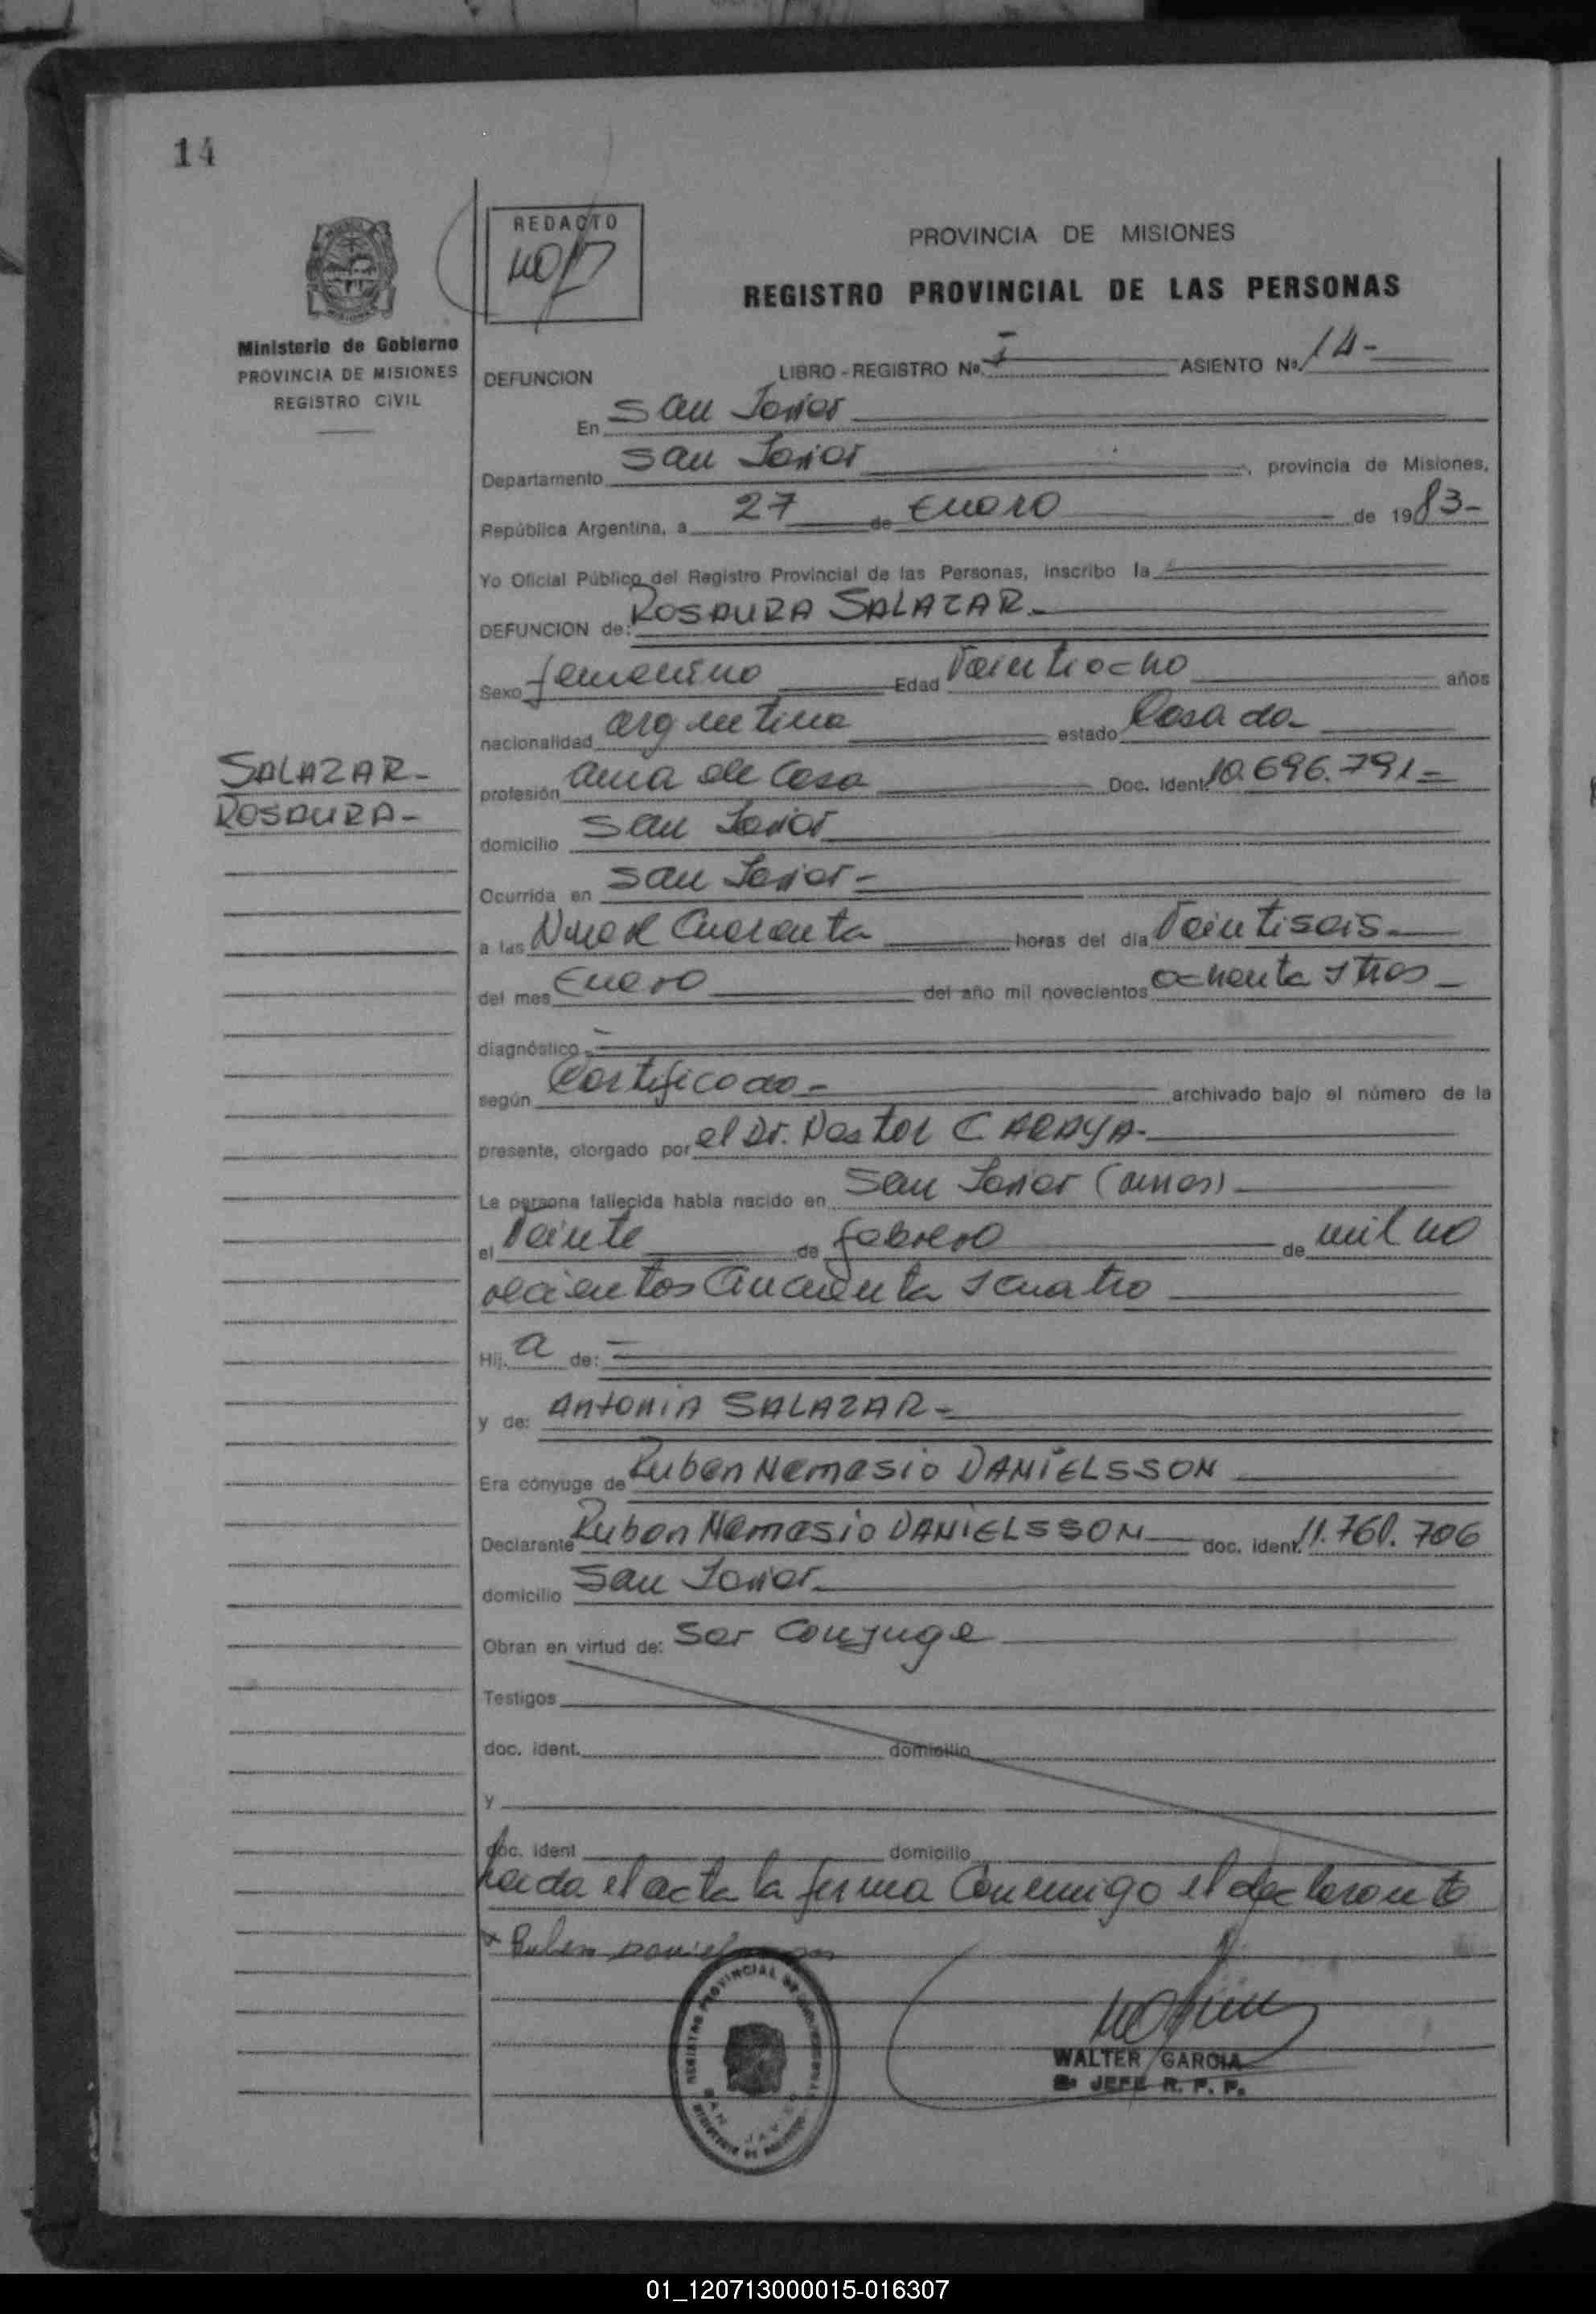 14
REDACTO
PROVINCIA DE MISIONES
REGISTRO PROVINCIAL DE LAS PERSONAS
Ministerio de Gobierno
PROVINCIA DE MISIONES
REGISTRO CIVIL
DEFUNCION LIBRO - REGISTRO No. I ASIENTO No. 14-
En San Javier
Departamento San Javier, provincia de Misiones,
República Argentina, a 27 de Enero de 1983-
Yo Oficial Público del Registro Provincial de las Personas, inscribo la
DEFUNCION de: ROSAURA SALAZAR-
Sexo femenino Edad Veintiocho años
nacionalidad argentina estado Casada-
SALAZAR-
ROSAURA-
profesión ama de Casa Doc. Ident. 10.696.791=
domicilio San Javier
Ocurrida en San Javier-
a las Cuarenta horas del día Veintiseis-
del mes Enero del año mil novecientos ochenta y tres-
diagnóstico -
según Certificado- archivado bajo el número de la
presente, otorgado por el Dr. Nestor CARAYA-
La persona fallecida había nacido en San Javier (Mnes)-
el Veinte de febrero de mil no
vecientos Cincuenta y cuatro
Hij a de: -
y de: ANTONIA SALAZAR-
Era cónyuge de Ruben Nemesio DANIELSSON
Declarante Ruben Nemesio DANIELSSON doc. ident. 11.760.706
domicilio San Javier
Obran en virtud de: Ser Conyuge
Testigos
doc. ident. domicilio
y
doc. ident domicilio
Leida el acta la firma Conmigo el declarante
Ruben
REGISTRO PROVINCIAL DE LAS PERSONAS
SAN JAVIER
WALTER GARCIA
JEFE R. P. P.
01_120713000015-016307